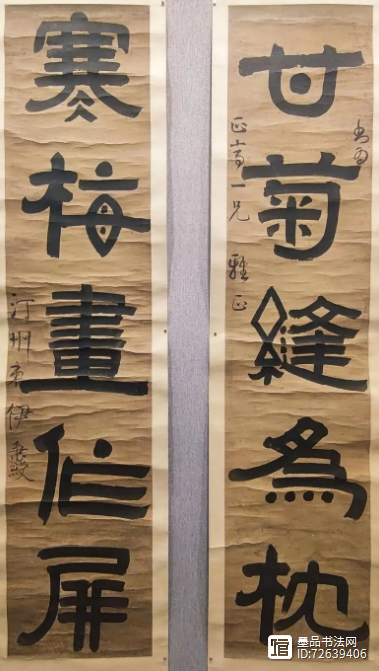 甘菊縫為枕
一兄 雅正
寒梅畫作屏
汀州弟伊秉綬
墨品书法网
ID:72639406